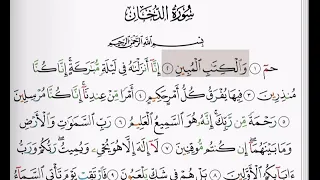 سُورَةُ الدُّخَانِ
بِسْمِ اللَّهِ الرَّحْمَٰنِ الرَّحِيمِ
حمٓ ١ وَالْكِتَٰبِ الْمُبِينِ ٢ إِنَّآ أَنزَلْنَٰهُ فِى لَيْلَةٍ مُّبَٰرَكَةٍ إِنَّا كُنَّا
مُنذِرِينَ ٣ فِيهَا يُفْرَقُ كُلُّ أَمْرٍ حَكِيمٍ ٤ أَمْرًا مِّنْ عِندِنَآ إِنَّا كُنَّا مُرْسِلِينَ
٥ رَحْمَةً مِّن رَّبِّكَ إِنَّهُۥ هُوَ السَّمِيعُ الْعَلِيمُ ٦ رَبِّ السَّمَٰوَٰتِ وَالْأَرْضِ
وَمَا بَيْنَهُمَآ إِن كُنتُم مُّوقِنِينَ ٧ لَآ إِلَٰهَ إِلَّا هُوَ يُحْىِۦ وَيُمِيتُ رَبُّكُمْ وَرَبُّ
ءَابَآئِكُمُ الْأَوَّلِينَ ٨ بَلْ هُمْ فِى شَكٍّ يَلْعَبُونَ ٩ فَارْتَقِبْ يَوْمَ تَأْتِى السَّمَآءُ